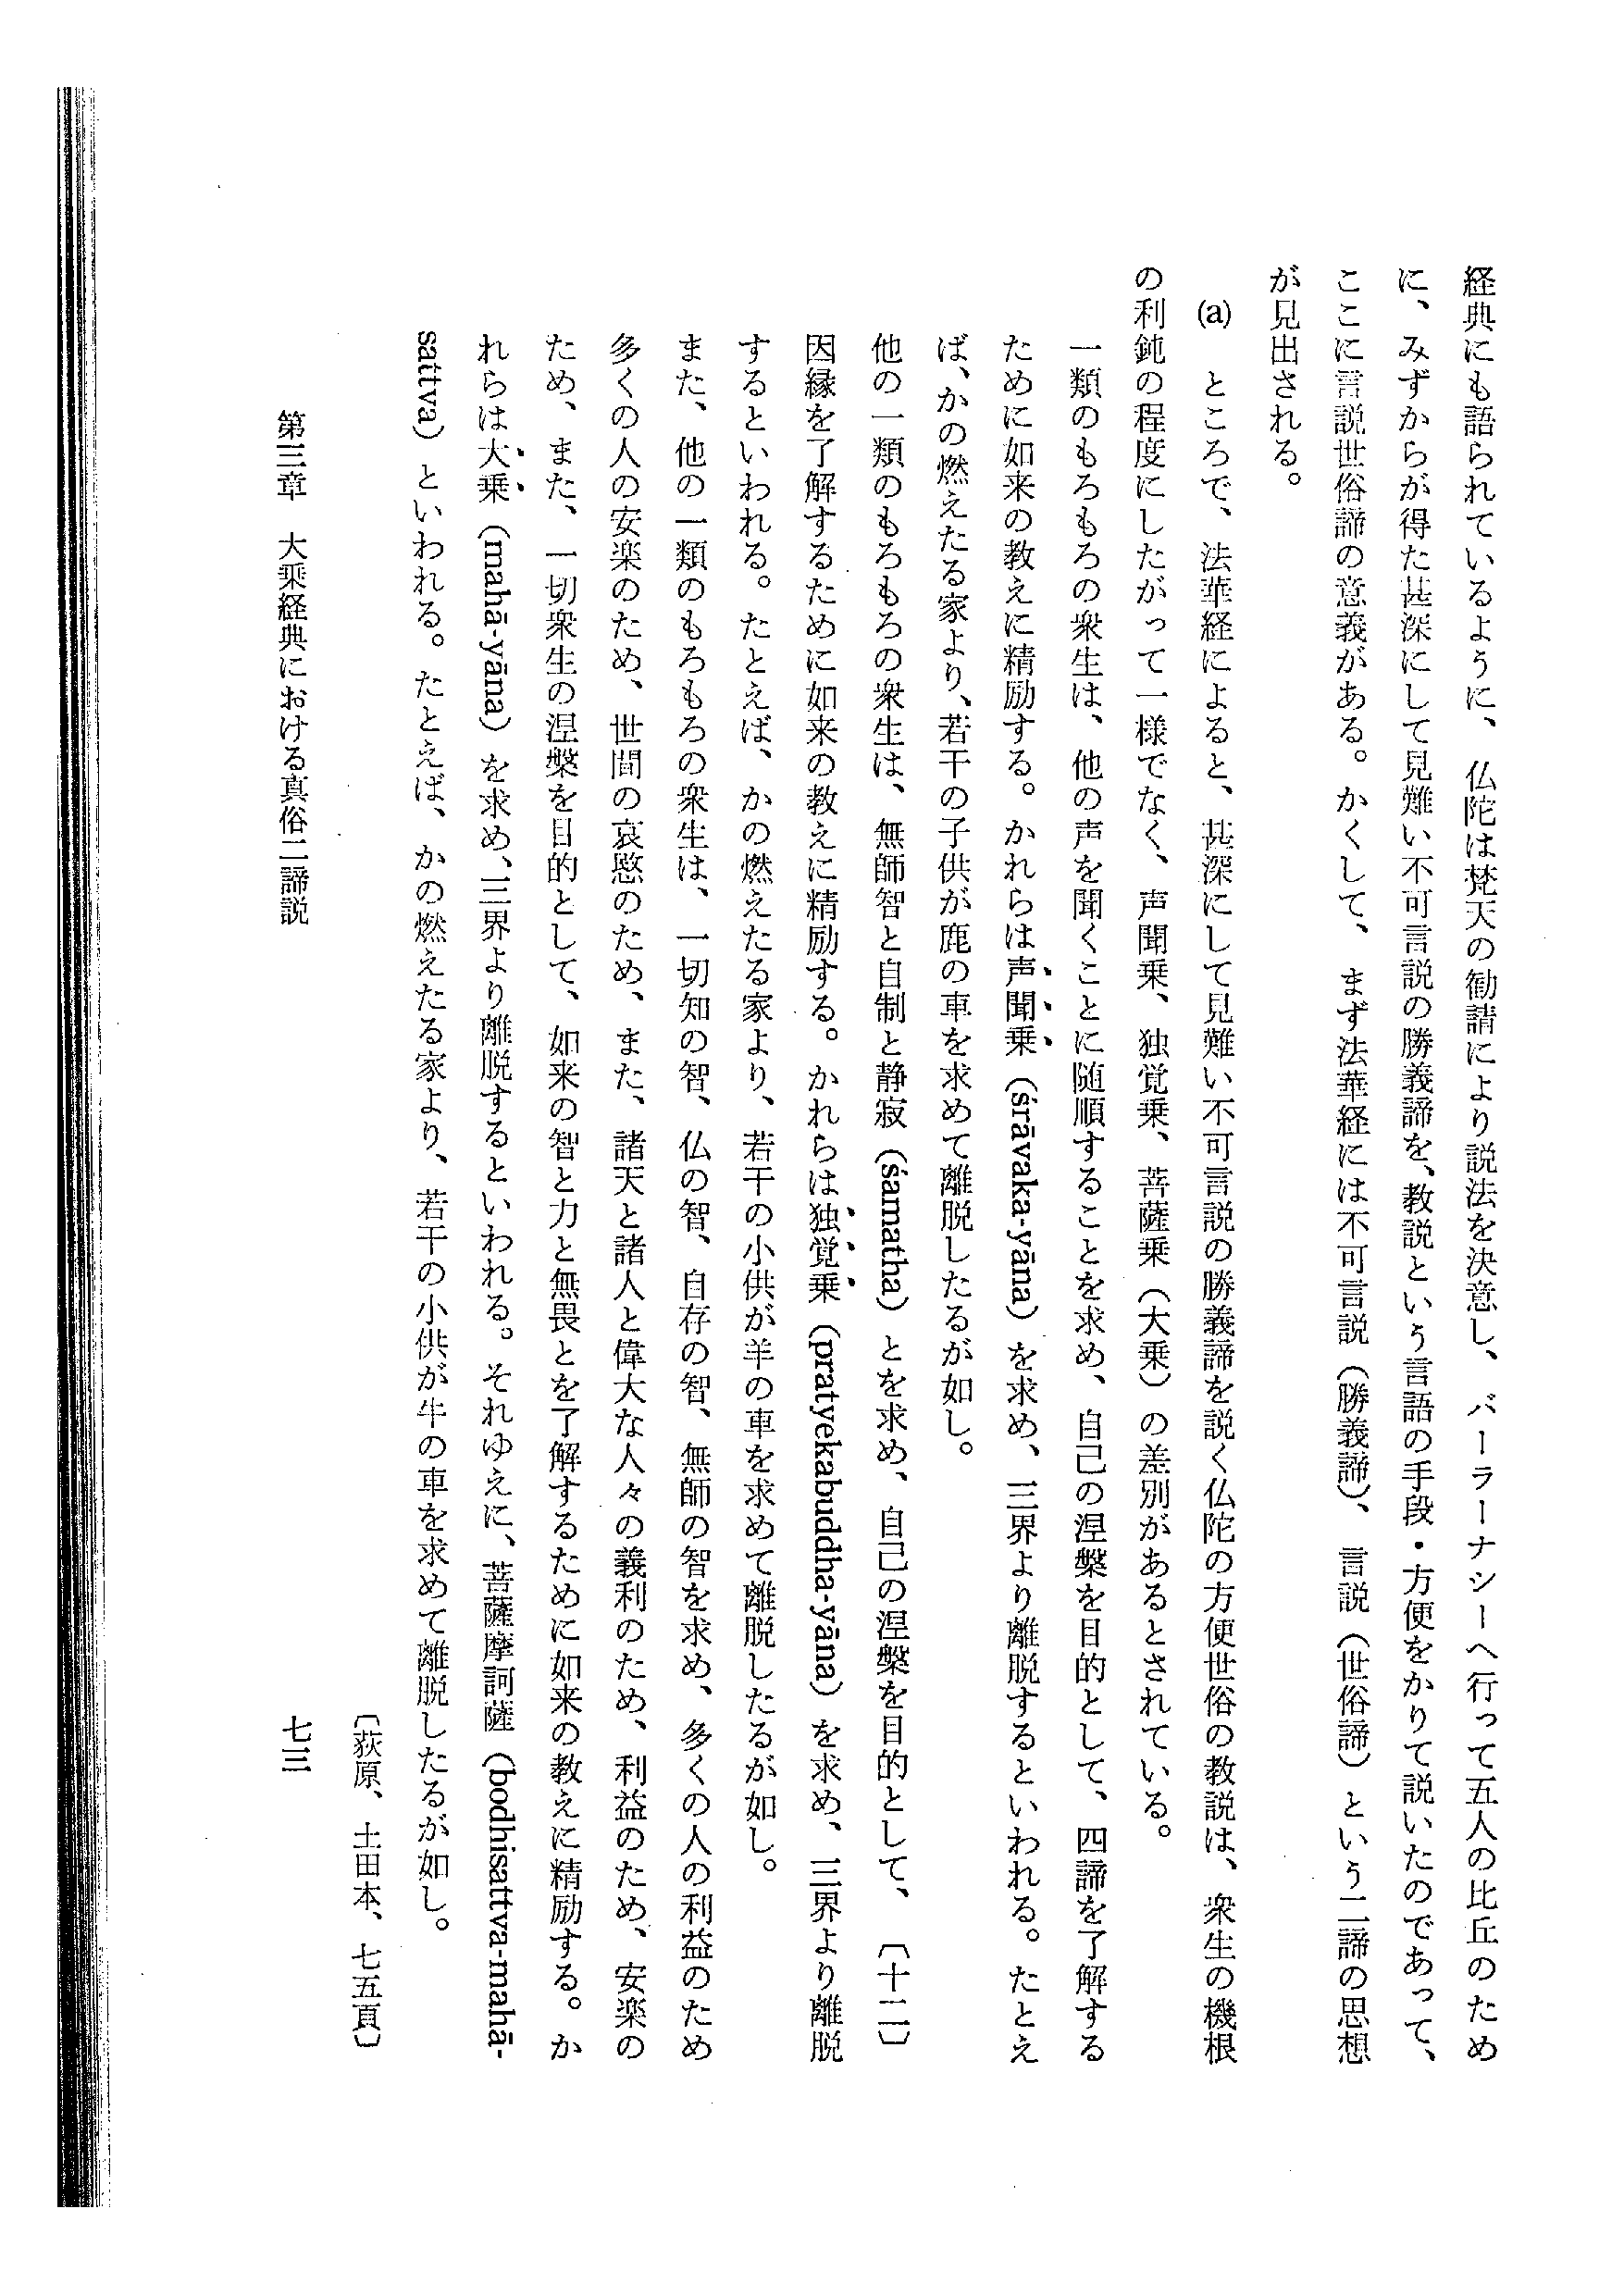 経典にも語られているように、仏陀は梵天の勧請により説法を決意し、バーラーナシーへ行って五人の比丘のため
に、みずからが得た甚深にして見難い不可言説の勝義諦を、教説という言語の手段・方便をかりて説いたのであって、
ここに言説世俗諦の意義がある。かくして、まず法華経には不可言説（勝義諦）、言説（世俗諦）という二諦の思想
が見出される。
(a) ところで、法華経によると、甚深にして見難い不可言説の勝義諦を説く仏陀の方便世俗の教説は、衆生の機根
の利鈍の程度にしたがって一様でなく、声聞乗、独覚乗、菩薩乗（大乗）の差別があるとされている。
一類のもろもろの衆生は、他の声を聞くことに随順することを求め、自己の涅槃を目的として、四諦を了解する
ために如来の教えに精励する。かれらは声聞乗（śrāvaka-yāna）を求め、三界より離脱するといわれる。たとえ
ば、かの燃えたる家より、若干の子供が鹿の車を求めて離脱したるが如し。
他の一類のもろもろの衆生は、無師智と自制と静寂（śamatha）とを求め、自己の涅槃を目的として、〔十二〕
因縁を了解するために如来の教えに精励する。かれらは独覚乗（pratyekabuddha-yāna）を求め、三界より離脱
するといわれる。たとえば、かの燃えたる家より、若干の小供が羊の車を求めて離脱したるが如し。
また、他の一類のもろもろの衆生は、一切知の智、仏の智、自存の智、無師の智を求め、多くの人の利益のため
多くの人の安楽のため、世間の哀愍のため、また、諸天と諸人と偉大な人々の義利のため、利益のため、安楽の
ため、また、一切衆生の涅槃を目的として、如来の智と力と無畏とを了解するために如来の教えに精励する。か
れらは大乗（mahā-yāna）を求め、三界より離脱するといわれる。それゆえに、菩薩摩訶薩（bodhisattva-mahā-
sattva）といわれる。たとえば、かの燃えたる家より、若干の小供が牛の車を求めて離脱したるが如し。
〔荻原、土田本、七五頁〕
第三章 大乗経典における真俗二諦説
七三